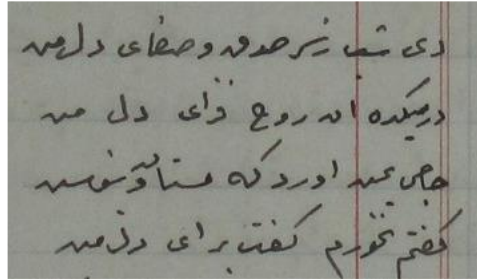 دی شب ز سر صدق و صفای دل من
در میکده ان روح فزای دل من
جامی بمن اورد که بستان و بنوش
گفتم نخورم گفت برای دل من